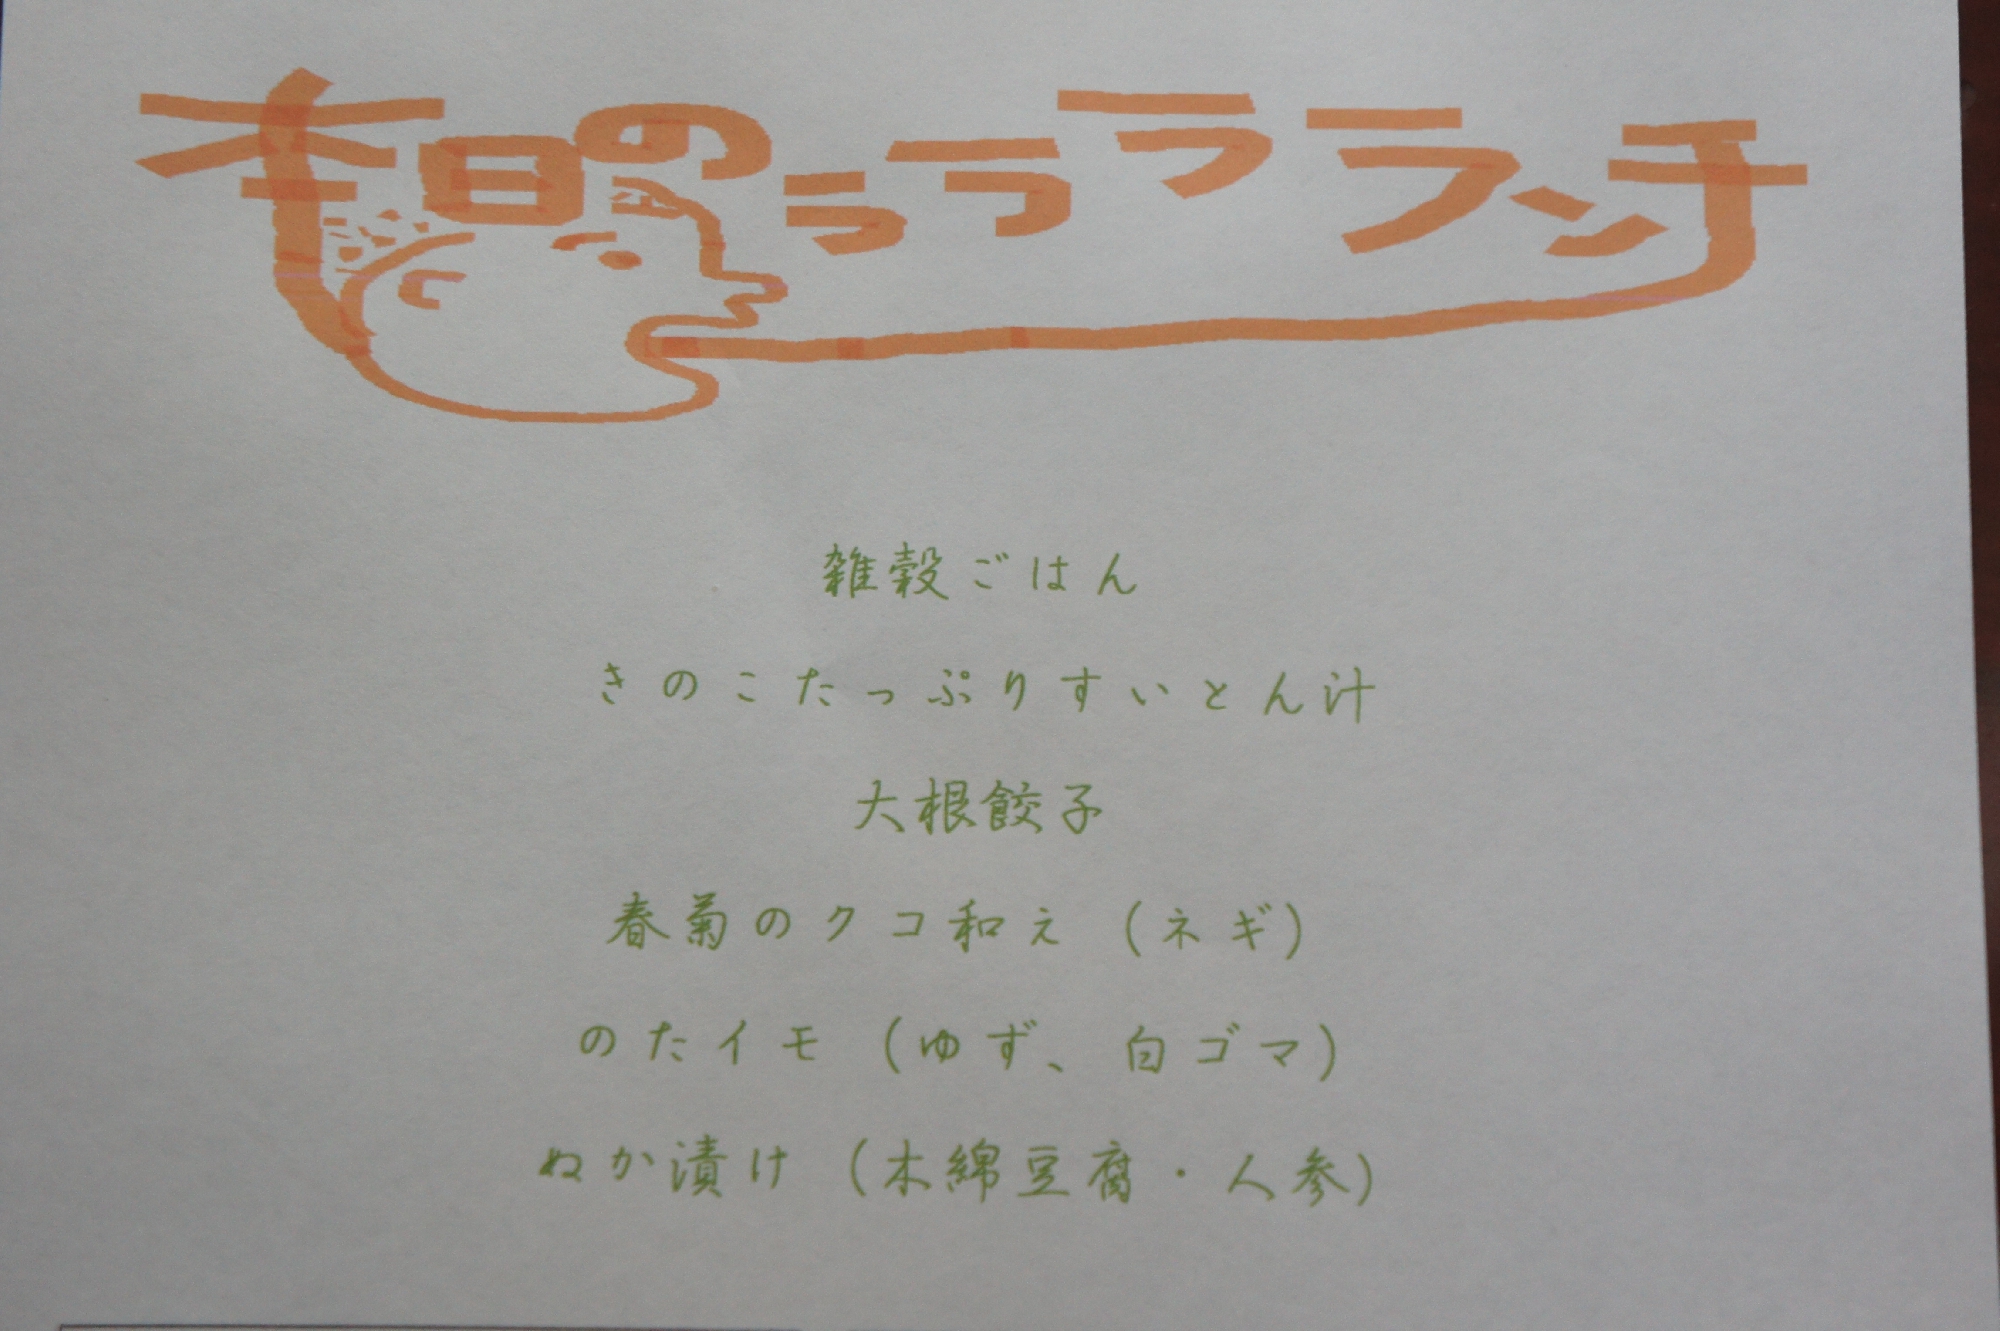 本日のララララランチ
雑穀ごはん
きのこたっぷりすいとん汁
大根餃子
春菊のクコ和え（ネギ）
のたイモ（ゆず、白ゴマ）
ぬか漬け（木綿豆腐・人参）